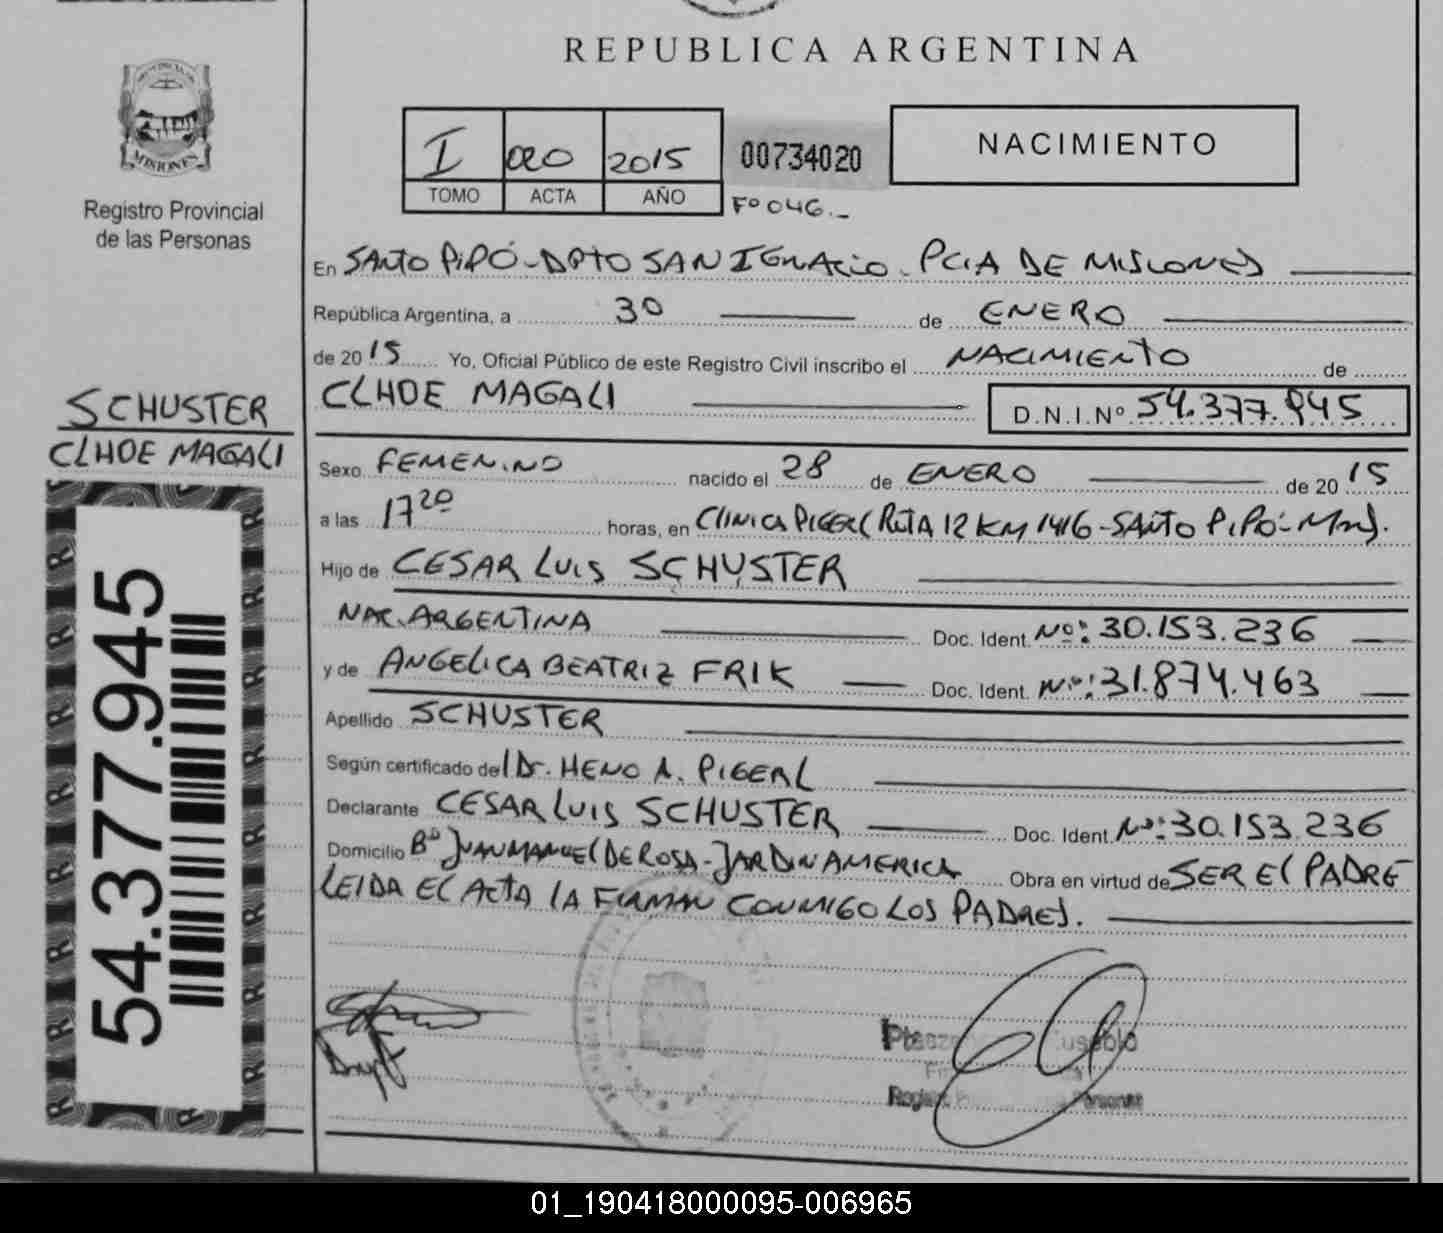 REPUBLICA ARGENTINA
PROVINCIA DE
MISIONES
Registro Provincial
de las Personas
I 020 2015 00734020
TOMO ACTA AÑO
Fº 046.-
NACIMIENTO
En SANTO PIPÓ - DPTO SAN IGNACIO - PCIA DE MISIONES
República Argentina, a 30 de ENERO
de 2015 Yo, Oficial Público de este Registro Civil inscribo el NACIMIENTO de
CLHOE MAGALI D.N.I.Nº 54.377.945
SCHUSTER
CLHOE MAGALI
54.377.945
Sexo FEMENINO nacido el 28 de ENERO de 2015
a las 17 20 horas, en CLINICA PIGERL RUTA 12 KM 1416 - SANTO PIPÓ - Mns.
Hijo de CESAR LUIS SCHUSTER
NAC. ARGENTINA Doc. Ident. Nº: 30.153.236
y de ANGELICA BEATRIZ FRIK Doc. Ident. Nº: 31.874.463
Apellido SCHUSTER
Según certificado del Dr. HENO A. PIGERL
Declarante CESAR LUIS SCHUSTER Doc. Ident. Nº: 30.153.236
Domicilio Bº JUAN MANUEL DE ROSA - JARDIN AMERICA Obra en virtud de SER EL PADRE
LEIDA EL ACTA LA FIRMAN CONMIGO LOS PADRES.
Personas
01_190418000095-006965